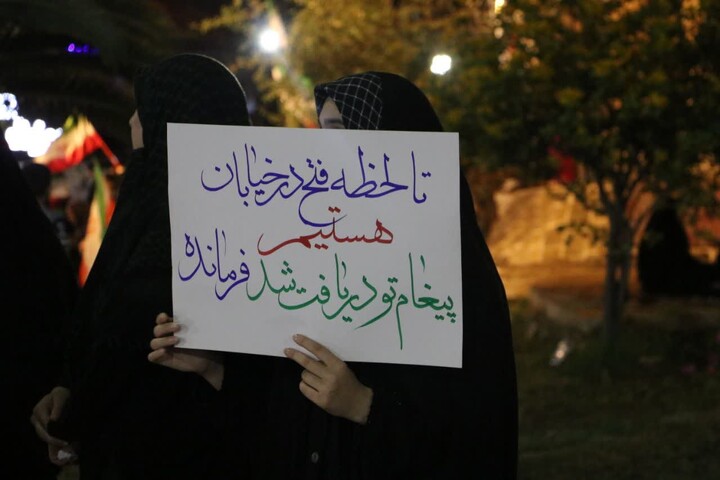 تا لحظه فتح در خیابان
هستیم
پیغام تو دریافت شد فرمانده